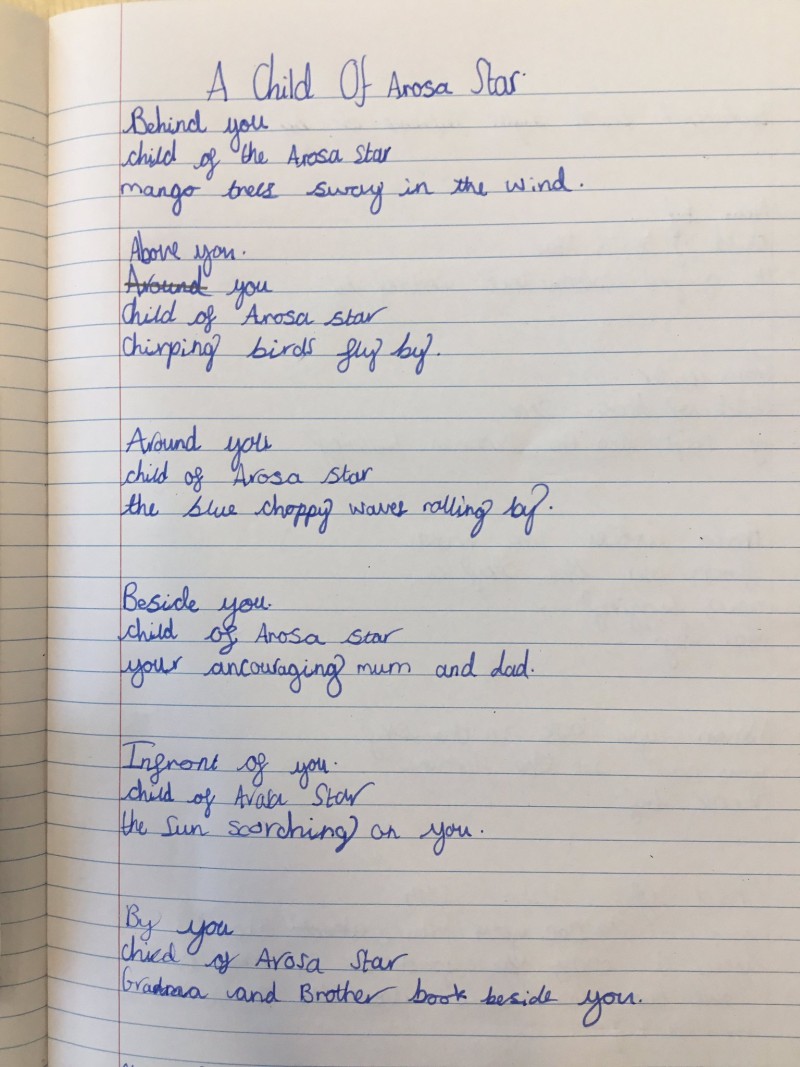 A Child Of Arosa Star.
Behind you
child of the Arosa Star
mango trees sway in the wind.
Above you.
Around you
child of Arosa star
Chirping birds fly by.
Around you
child of Arosa star
the blue choppy waves rolling by.
Beside you.
child of Arosa star
your ancouraging mum and dad.
Infront of you.
child of Star
the Sun scorching on you.
By you
child of Arosa Star
and Brother book beside you.